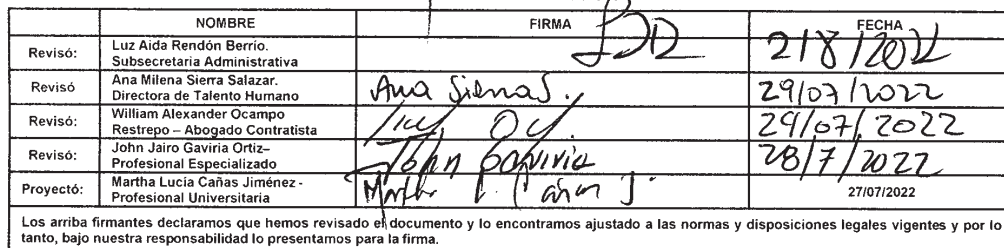 NOMBRE FIRMA FECHA
Revisó: Luz Aida Rendón Berrío.
Subsecretaria Administrativa 2/8/2022
Revisó Ana Milena Sierra Salazar.
Directora de Talento Humano Ana Sierra S. 29/07/2022
Revisó: William Alexander Ocampo
Restrepo – Abogado Contratista 29/07/2022
Revisó: John Jairo Gaviria Ortiz–
Profesional Especializado John Gaviria 28/7/2022
Proyectó: Martha Lucía Cañas Jiménez -
Profesional Universitaria Martha L. Cañas J. 27/07/2022
Los arriba firmantes declaramos que hemos revisado el documento y lo encontramos ajustado a las normas y disposiciones legales vigentes y por lo
tanto, bajo nuestra responsabilidad lo presentamos para la firma.